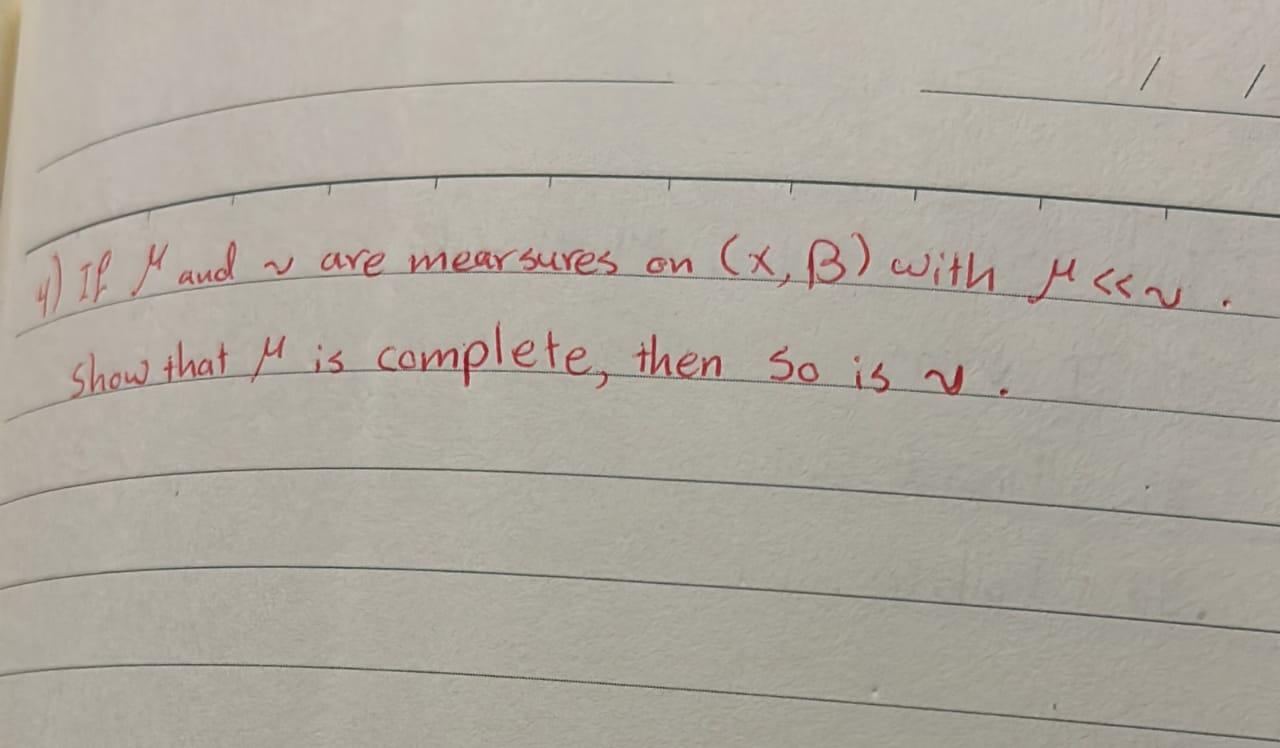 4) If μ and ν are mearsures on (X, β) with μ << ν .
Show that μ is complete, then so is ν .